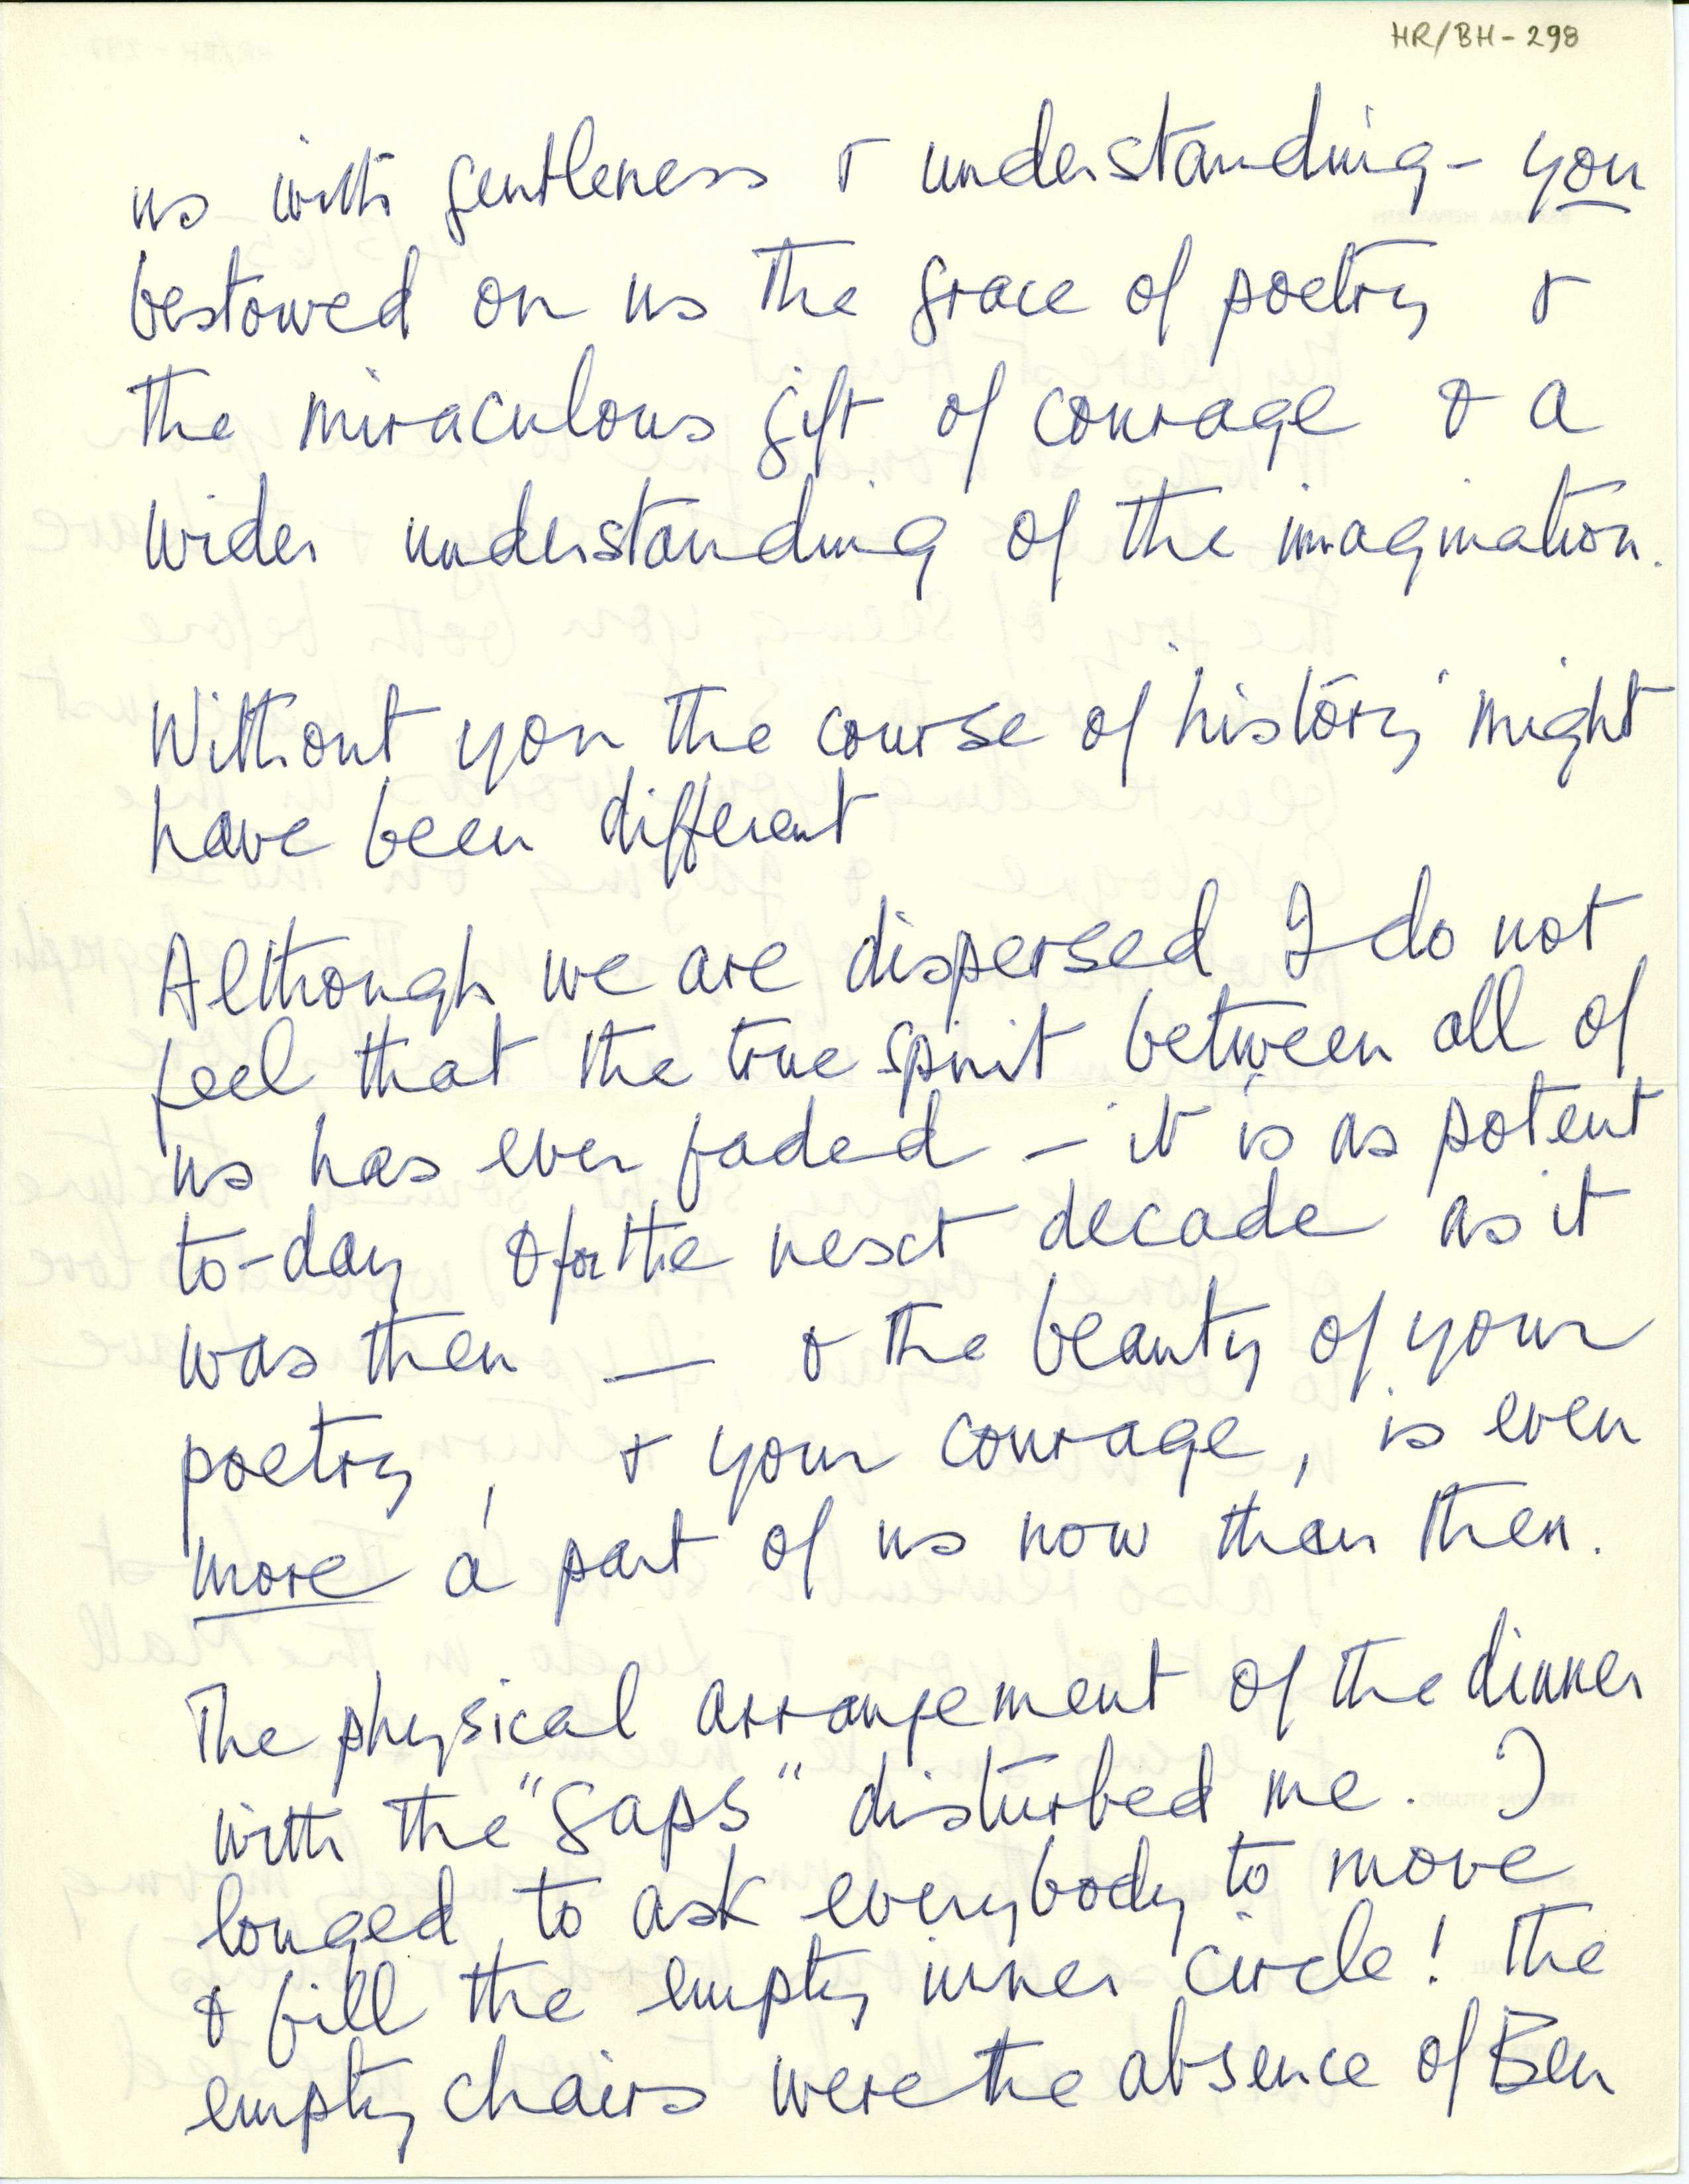 HR/BH-298
us with gentleness & understanding - you
bestowed on us the grace of poetry &
the miraculous gift of courage & a
wider understanding of the imagination.
Without you the course of 'history' might
have been different
Although we are dispersed I do not
feel that the true spirit between all of
us has ever faded - it is as potent
to-day & for the next decade as it
was then — & the beauty of your
poetry, & your courage, is even
more a part of us now than then.
The physical arrangement of the dinner
with the "gaps" disturbed me. I
longed to ask everybody to move
& fill the empty inner circle! The
empty chairs were the absence of Ben